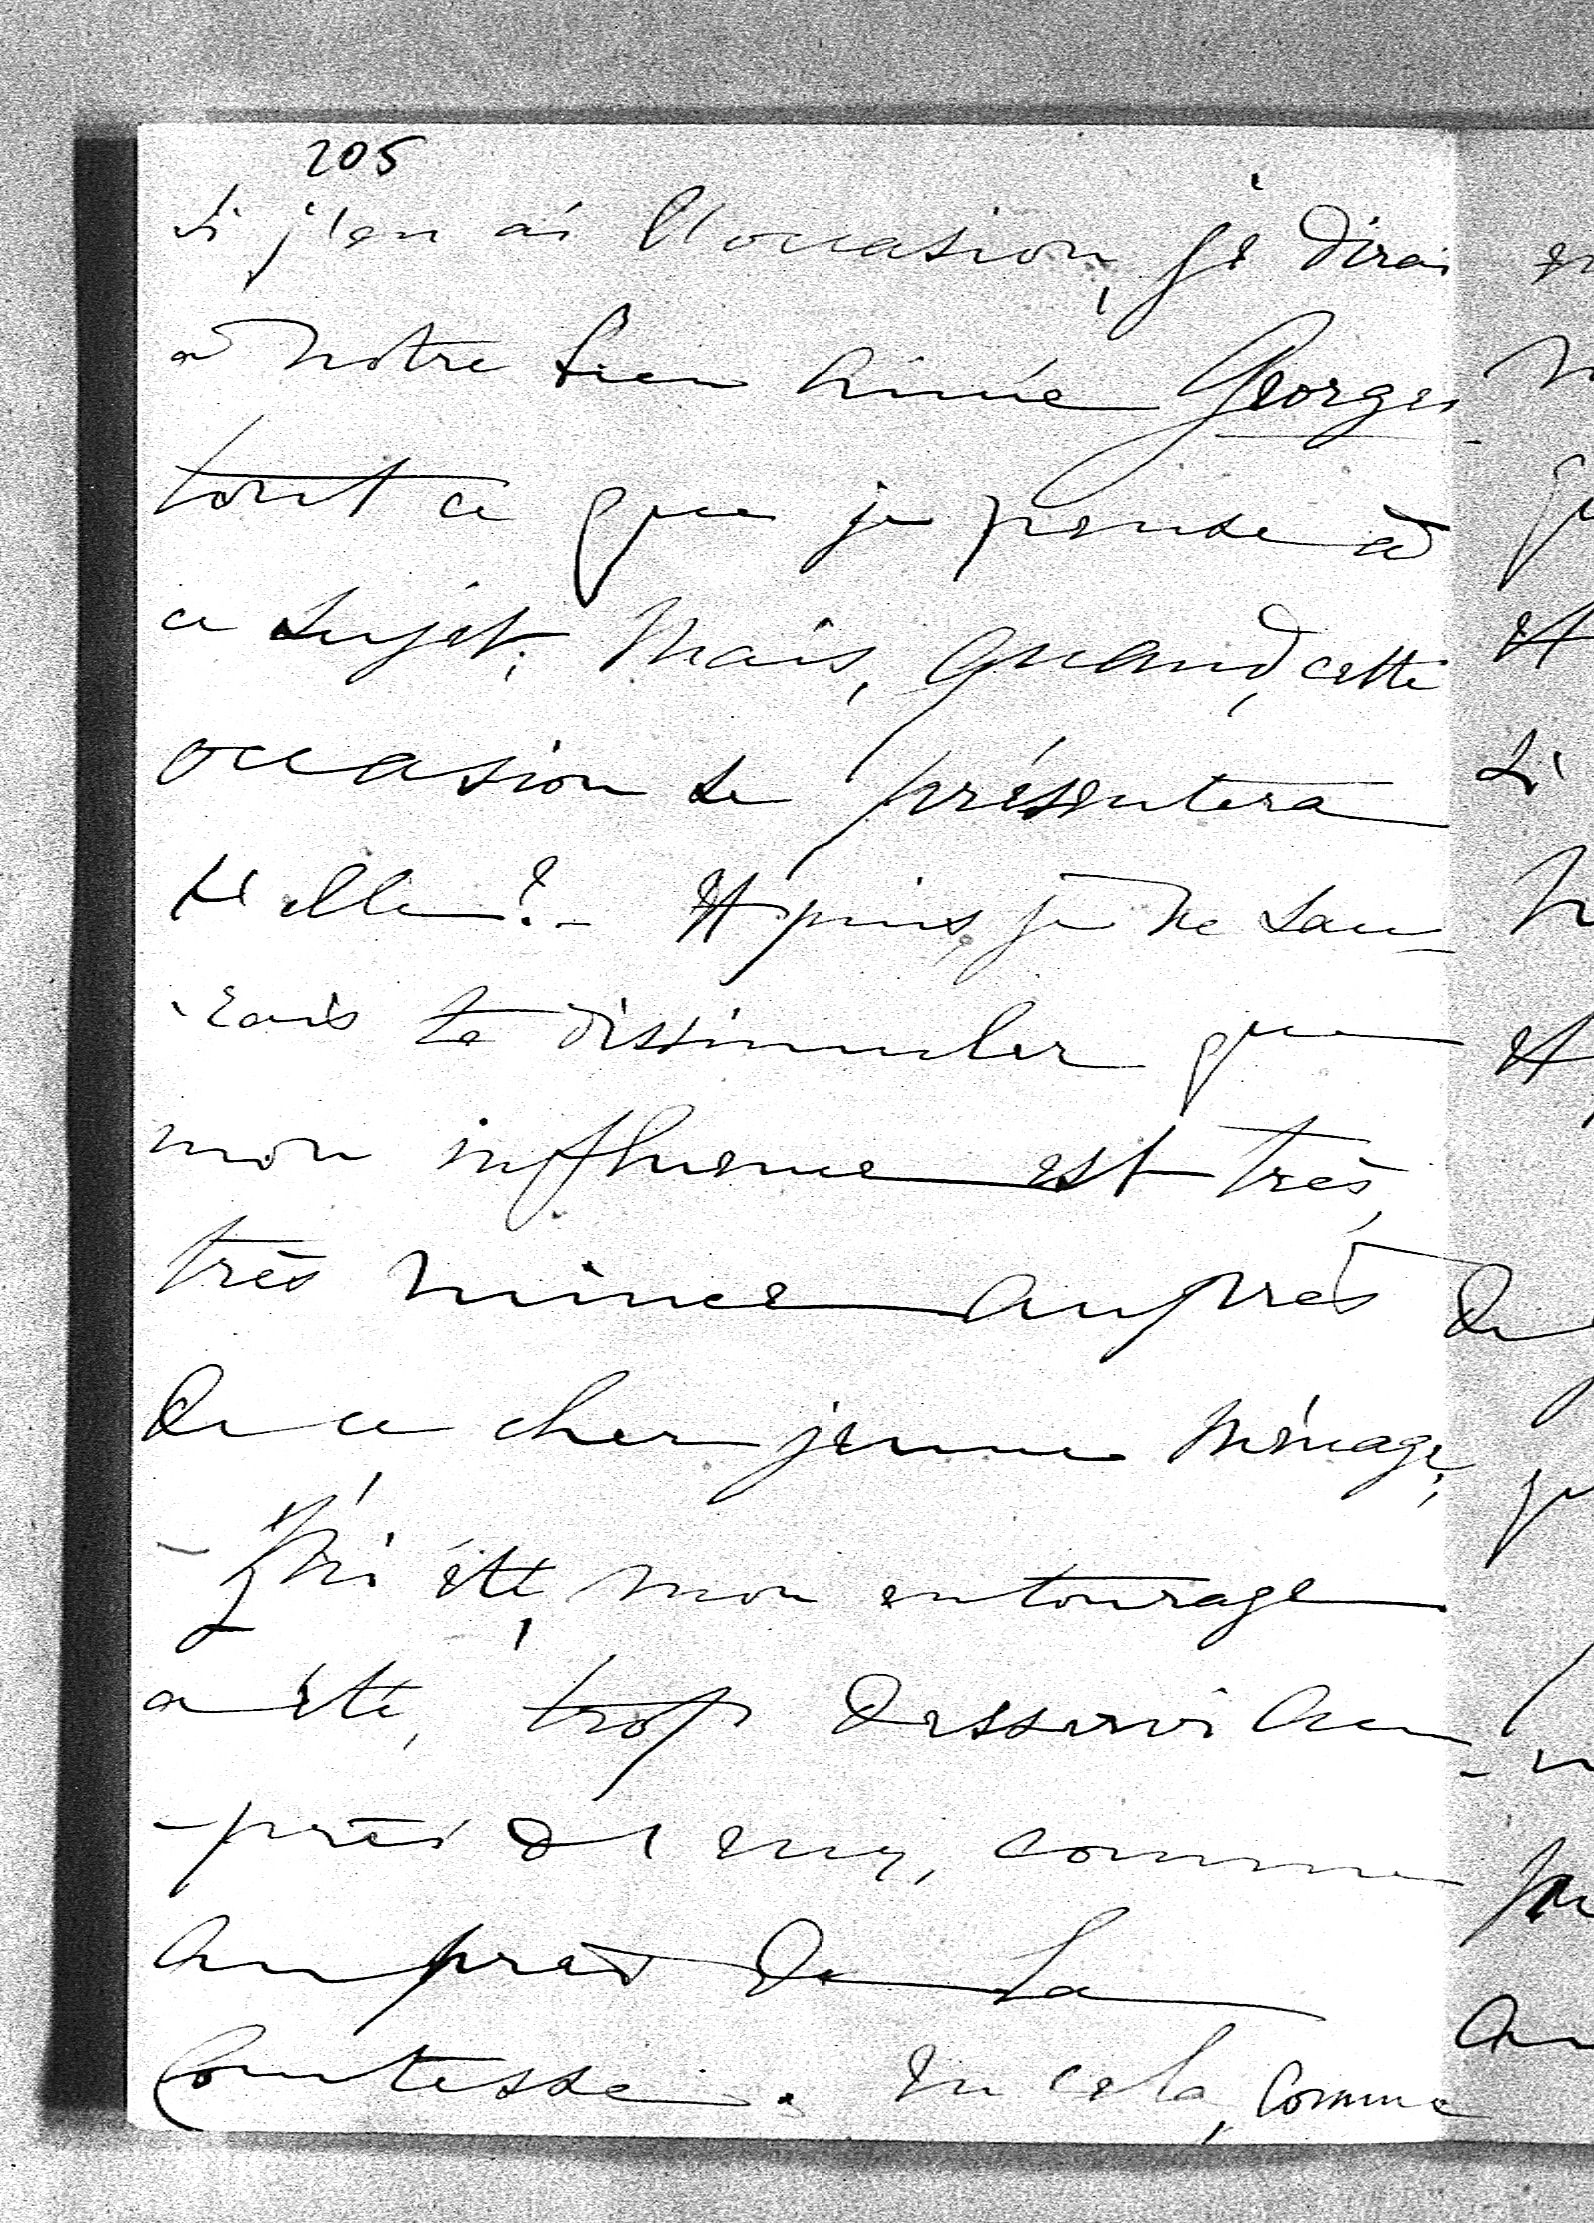 205
si j'en ai l'occasion, je dirai
à notre bien aimée Georges
tout ce que je pense à
ce sujet; Mais, quand, cette
occasion se présentera
t'elle?- Et puis, je ne sau-
-rais te dissimuler que
mon influence est très,
très mince auprès
de ce cher jeune ménage;
été, mon entourage
a été, trop desservi au-
-près d'eux, comme
auprès de la
Comtesse. En cela, comme